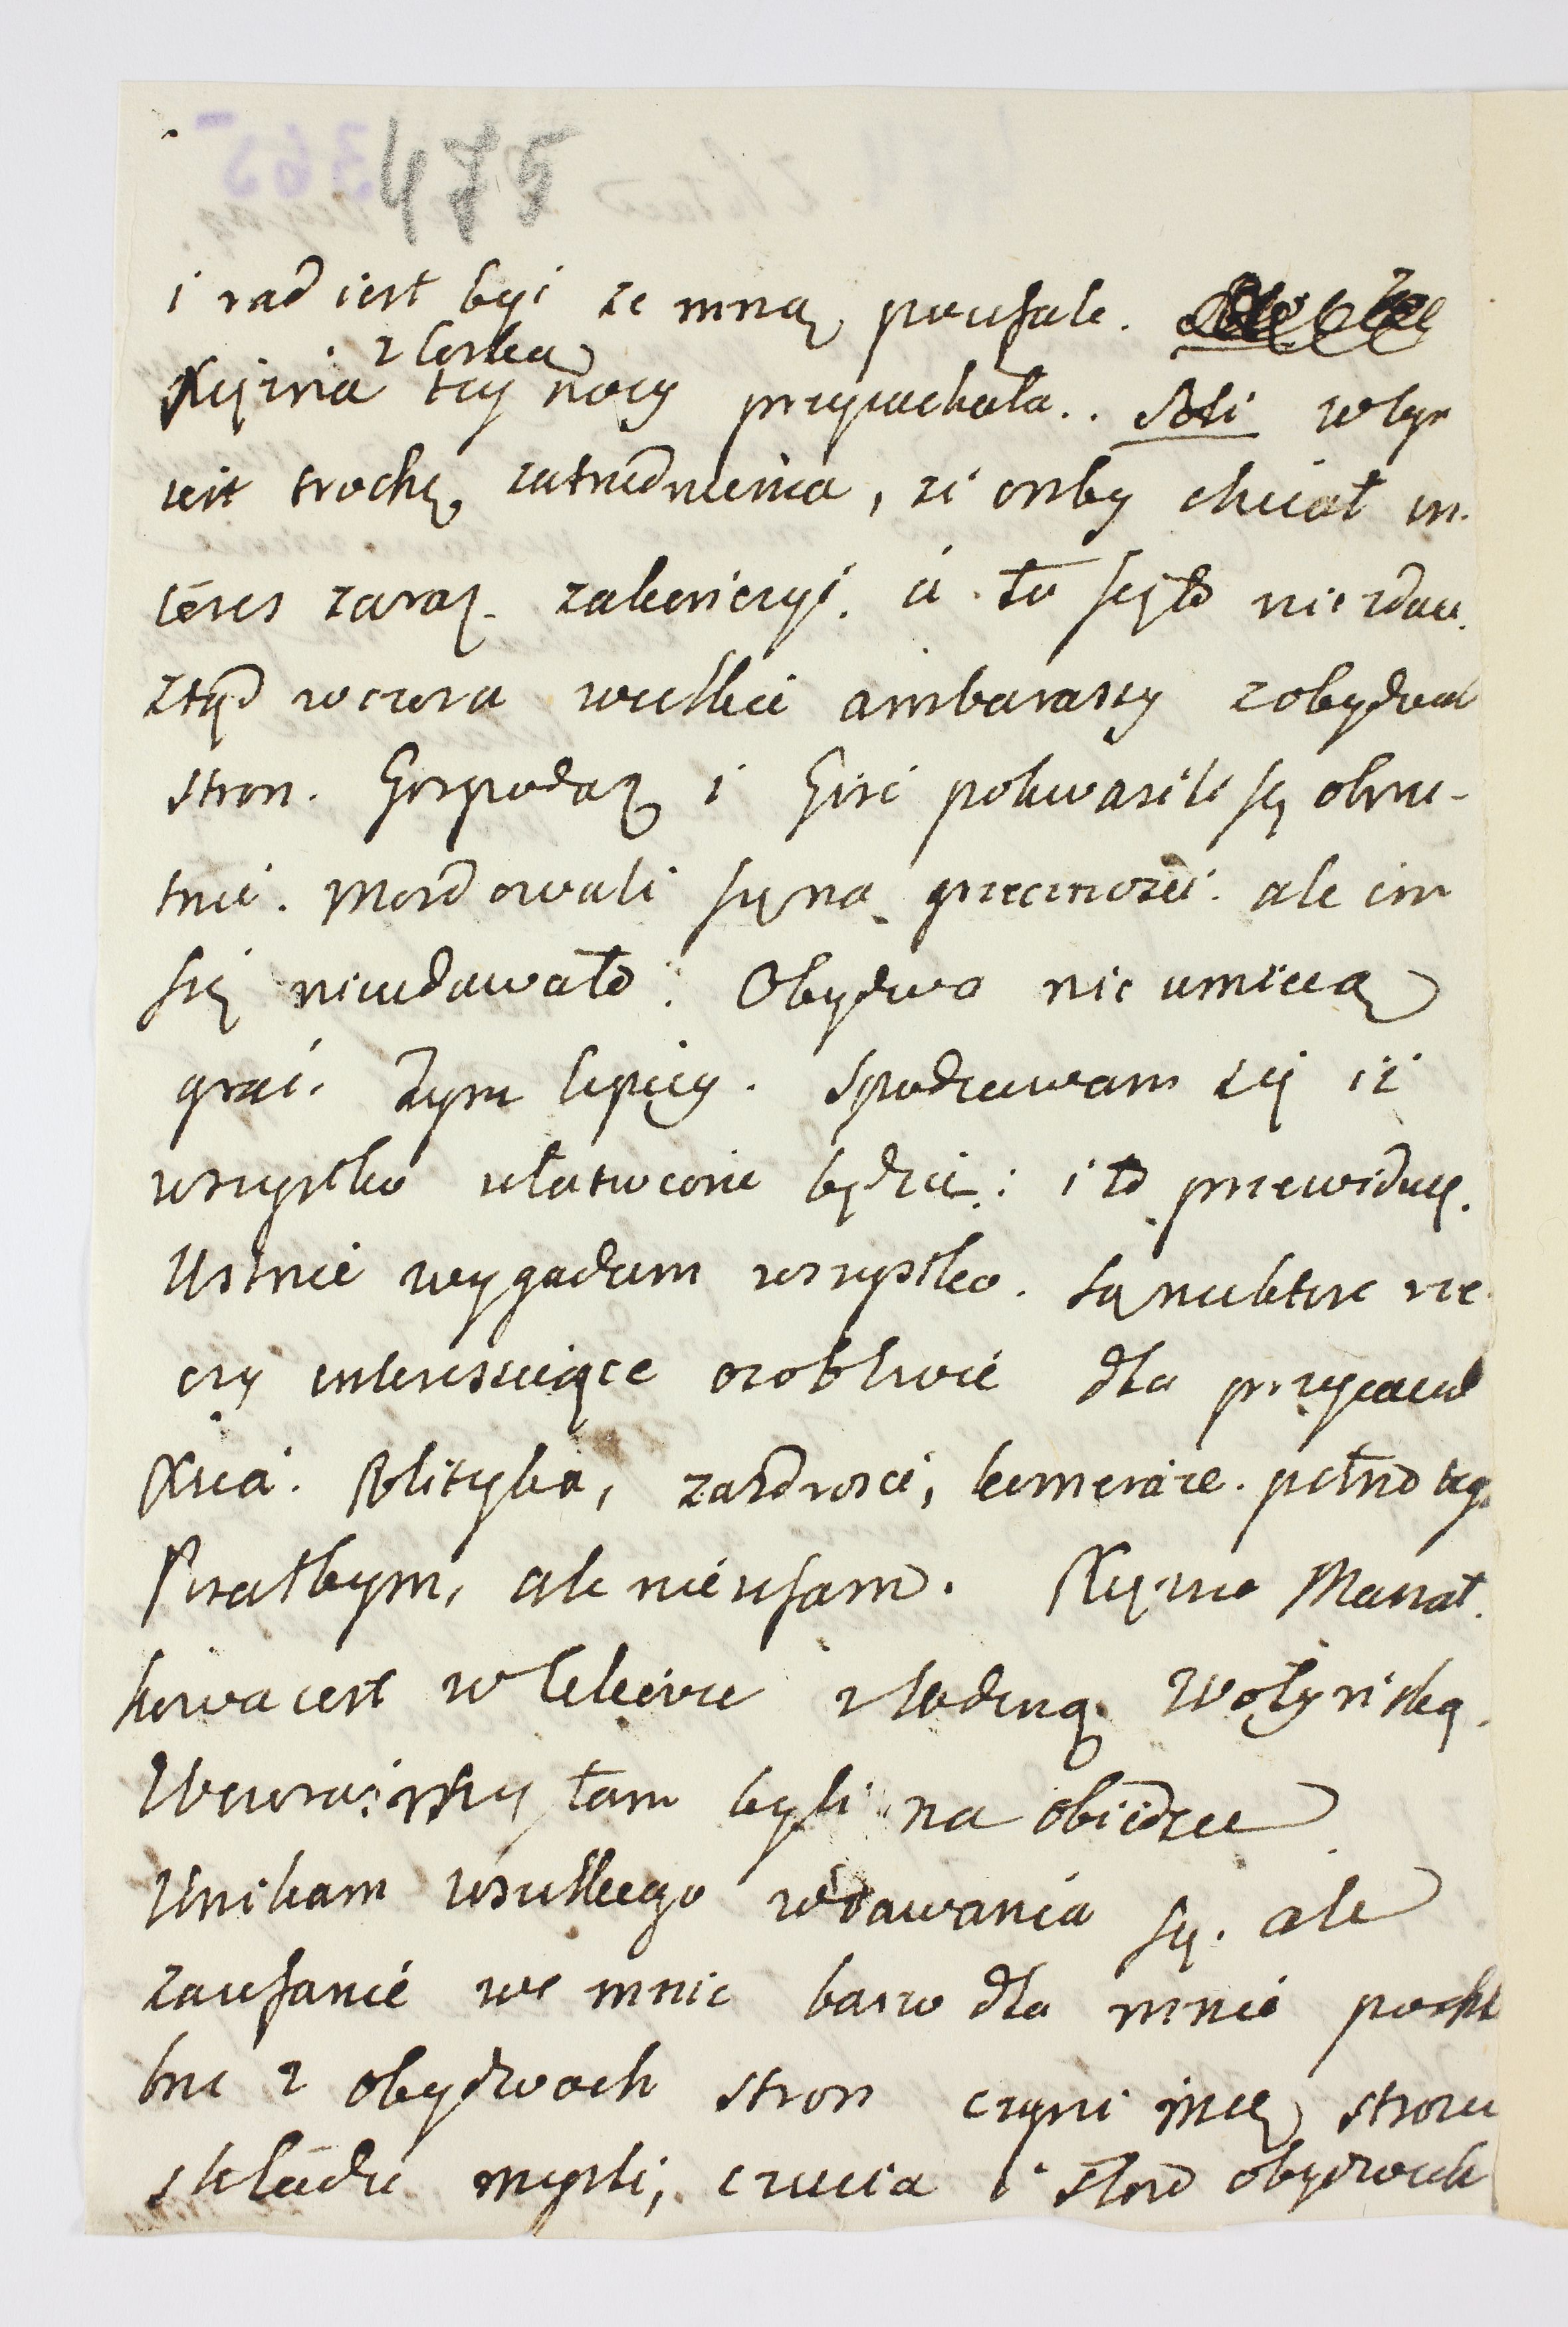 475
i rad iest być ze mną poufale.
z Corką
Xiężna tey nocy przyiechała.. Poki w tym
iest trochę zatrudnienia, że onby chciał in-
teres zaraz zakończyć. a tu się to nie zdaie.
ztąd wczora wielkie ambarassy z obydwoch
stron. Gospodarz i Gość pokwasili się okru-
tnie. Mordowali się na grzeczność. ale im
się nieudawało. Obydwa nie umieią
grać. Tym lepiey. Spodziewam się iż
wszystko ułatwione będzie: i to przewiduię.
Ustnie wygadam wszystko. Są niektóre rze-
czy interessuiące osobliwie dla przyiaciol
Xcia. Polityka, zazdrości, komeraże. pełno tego
Pisałbym, ale nie ufam. Xiężna Marszał-
kowa iest w Sekowce z Rodziną Wołyńską.
Wczora my tam byli na obiedzie
Unikam wszelkiego wdawania się. ale
zaufanie we mnie barzo dla mnie pochle
bne z obydwoch stron czyni mię stroze
składu myśli, czucia i słow obydwoch